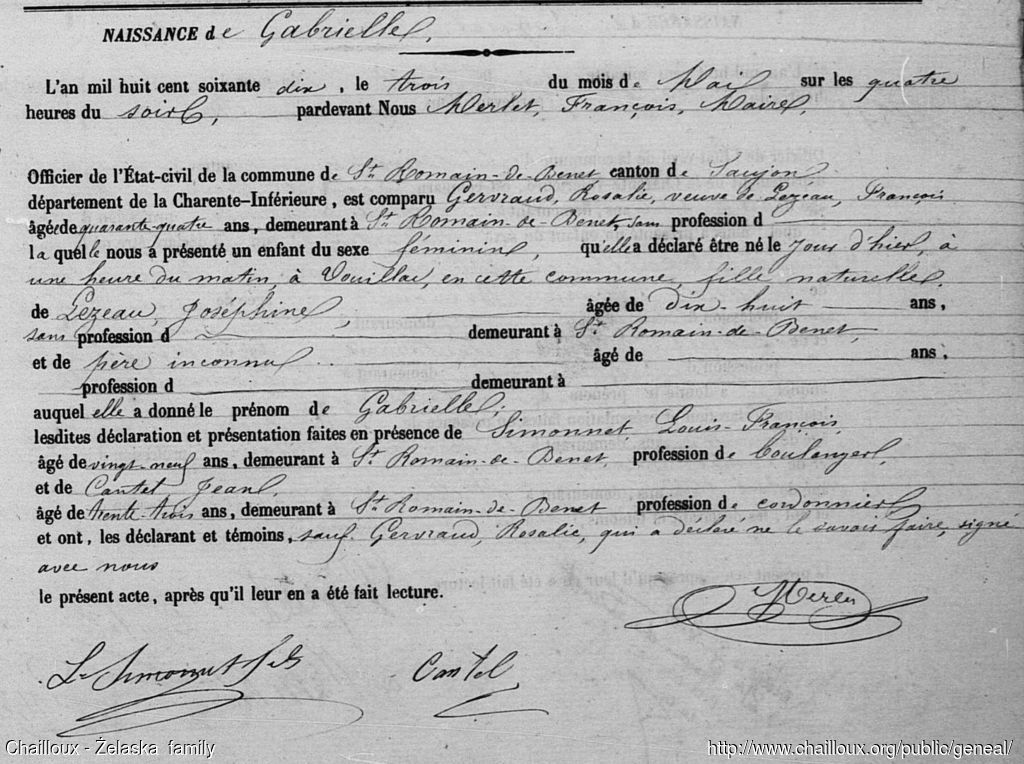 NAISSANCE de Gabrielle.
L'an mil huit cent soixante dix, le trois du mois de Mai sur les quatre
heures du soir, pardevant Nous Merlet, François, Maire,
Officier de l'État-civil de la commune de St Romain-de-Benet canton de Saujon
département de la Charente-Inférieure, est comparu Gervraud, Rosalie, veuve de Lezeau, François
âgée de quarante-quatre ans, demeurant à St Romain-de-Benet, sans profession d
laquelle nous a présenté un enfant du sexe féminin, qu'elle a déclaré être né le jour d'hier, à
une heure du matin, à Vouillac, en cette commune, fille naturelle
de Lezeau, Joséphine, âgée de dix huit ans,
sans profession d demeurant à St Romain-de-Benet,
et de père inconnu âgé de ans,
profession d demeurant à
auquel elle a donné le prénom de Gabrielle;
lesdites déclaration et présentation faites en présence de Simonnet, Louis-François,
âgé de vingt-neuf ans, demeurant à St Romain-de-Benet, profession de boulanger,
et de Cantet Jean,
âgé de trente trois ans, demeurant à St Romain-de-Benet profession de cordonnier
et ont, les déclarant et témoins, sauf Gervraud, Rosalie, qui a déclaré ne le savoir faire, signé
avec nous
le présent acte, après qu'il leur en a été fait lecture.
L Simonnet fils Cantet
Chailloux - Żelaska family http://www.chailloux.org/public/geneal/